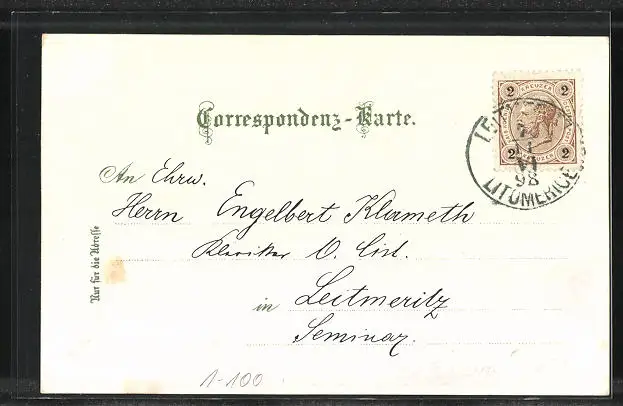 Correspondenz-Karte.
2 KREUZER 2
2 KREUZER 2
98
LITOMĚŘICE
An Ehrw.
Herrn Engelbert Klameth
Kleriker O. Cist.
in Leitmeritz
Seminar.
Nur für die Adresse
1-100